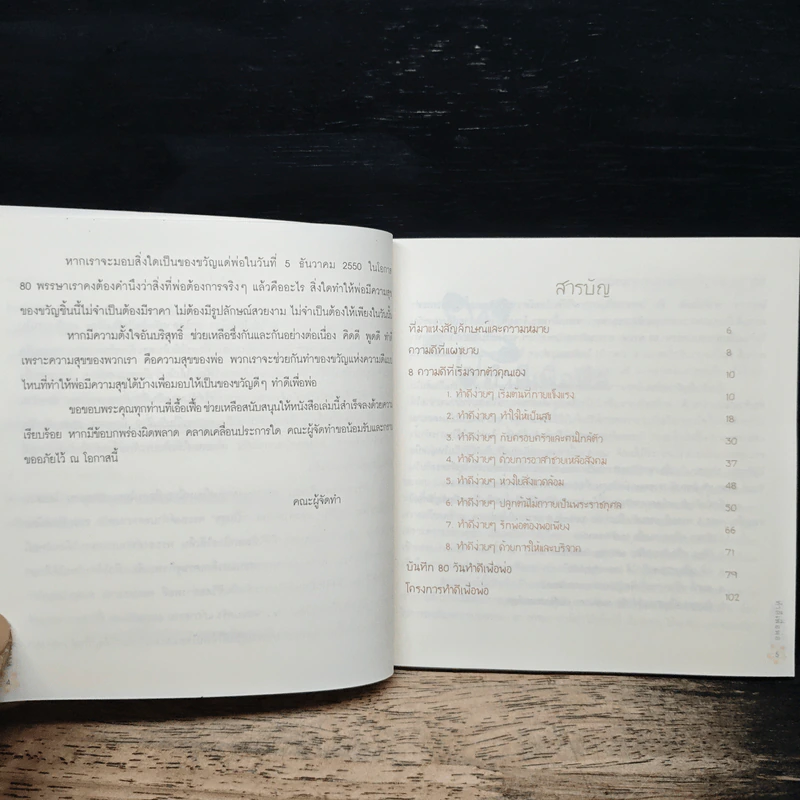 หากเราจะมอบสิ่งใดเป็นของขวัญแด่พ่อในวันที่ 5 ธันวาคม 2550 ในโอกาส
80 พรรษาเราคงต้องคำนึงว่าสิ่งที่พ่อต้องการจริงๆ แล้วคืออะไร สิ่งใดทำให้พ่อมีความสุข
ของขวัญชิ้นนี้ไม่จำเป็นต้องมีราคา ไม่ต้องมีรูปลักษณ์สวยงาม ไม่จำเป็นต้องให้เพียงในวันนั้น
หากมีความตั้งใจอันบริสุทธิ์ ช่วยเหลือซึ่งกันและกันอย่างต่อเนื่อง คิดดี พูดดี
เพราะความสุขของพวกเรา คือความสุขของพ่อ พวกเราจะช่วยกันทำของขวัญแห่งความดี
ไหนที่ทำให้พ่อมีความสุขได้บ้างเพื่อมอบให้เป็นของขวัญดีๆ ทำดีเพื่อพ่อ
ขอขอบพระคุณทุกท่านที่เอื้อเฟื้อ ช่วยเหลือสนับสนุนให้หนังสือเล่มนี้สำเร็จลงด้วยความ
เรียบร้อย หากมีข้อบกพร่องผิดพลาด คลาดเคลื่อนประการใด คณะผู้จัดทำขอน้อมรับและ
ขออภัยไว้ ณ โอกาสนี้
คณะผู้จัดทำ
สารบัญ
ที่มาแห่งสัญลักษณ์และความหมาย 6
ความดีที่แผ่ขยาย 8
8 ความดีที่เริ่มจากตัวคุณเอง 10
1. ทำดีง่ายๆ เริ่มต้นที่กายแข็งแรง 10
2. ทำดีง่ายๆ ทำใจให้เป็นสุข 18
3. ทำดีง่ายๆ กับครอบครัวและคนใกล้ตัว 30
4. ทำดีง่ายๆ ด้วยการอาสาช่วยเหลือสังคม 37
5. ทำดีง่ายๆ ห่วงใยสิ่งแวดล้อม 48
6. ทำดีง่ายๆ ปลูกต้นไม้ถวายเป็นพระราชกุศล 50
7. ทำดีง่ายๆ รักพ่อต้องพอเพียง 66
8. ทำดีง่ายๆ ด้วยการให้และบริจาค 71
บันทึก 80 วันทำดีเพื่อพ่อ 79
โครงการทำดีเพื่อพ่อ 102
ทำดีเพื่อพ่อ
5